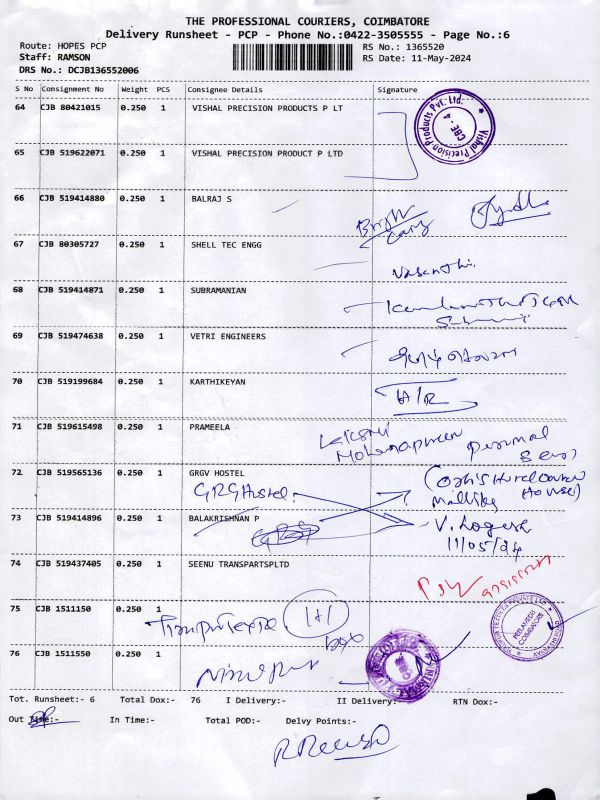 THE PROFESSIONAL COURIERS, COIMBATORE
Delivery Runsheet - PCP - Phone No.:0422-3505555 - Page No.:6
Route: HOPES PCP
RS No.: 1365520
Staff: RAMSON
RS Date: 11-May-2024
DRS No.: DCJB136552006
S No Consignment No Weight PCS Consignee Details Signature
64 CJB 80421015 0.250 1 VISHAL PRECISION PRODUCTS P LT
Vishal Precision Products Pvt. Ltd. CBE - 4
65 CJB 519622071 0.250 1 VISHAL PRECISION PRODUCT P LTD
66 CJB 519414880 0.250 1 BALRAJ S
67 CJB 80305727 0.250 1 SHELL TEC ENGG
Vasanthi
68 CJB 519414871 0.250 1 SUBRAMANIAN
69 CJB 519474638 0.250 1 VETRI ENGINEERS
70 CJB 519199684 0.250 1 KARTHIKEYAN
71 CJB 519615498 0.250 1 PRAMEELA
72 CJB 519565136 0.250 1 GRGV HOSTEL
GRG Hostel
73 CJB 519414896 0.250 1 BALAKRISHNAN P
V. Logesh
11/05/24
74 CJB 519437405 0.250 1 SEENU TRANSPARTSPLTD
75 CJB 1511150 0.250 1
1+1
PEELAMEDU COIMBATORE
76 CJB 1511550 0.250 1
Tot. Runsheet:- 6 Total Dox:- 76 I Delivery:- II Delivery:- RTN Dox:-
Out Time:- In Time:- Total POD:- Delvy Points:-